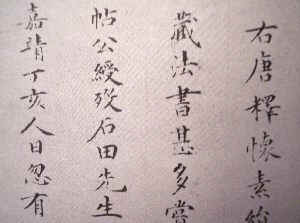 右唐釋懷素絹
藏法書甚多當
帖公綬攷石田先生
嘉靖丁亥人日忽有